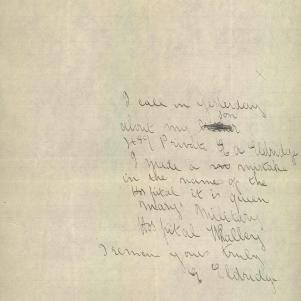 I call in yesterday
son
about my
Private G a Eldridge
I made a mistake
in the name of the
Hospital it is queen
mary's Military
Hospital Whalley
I remain yours truly
G Eldridge